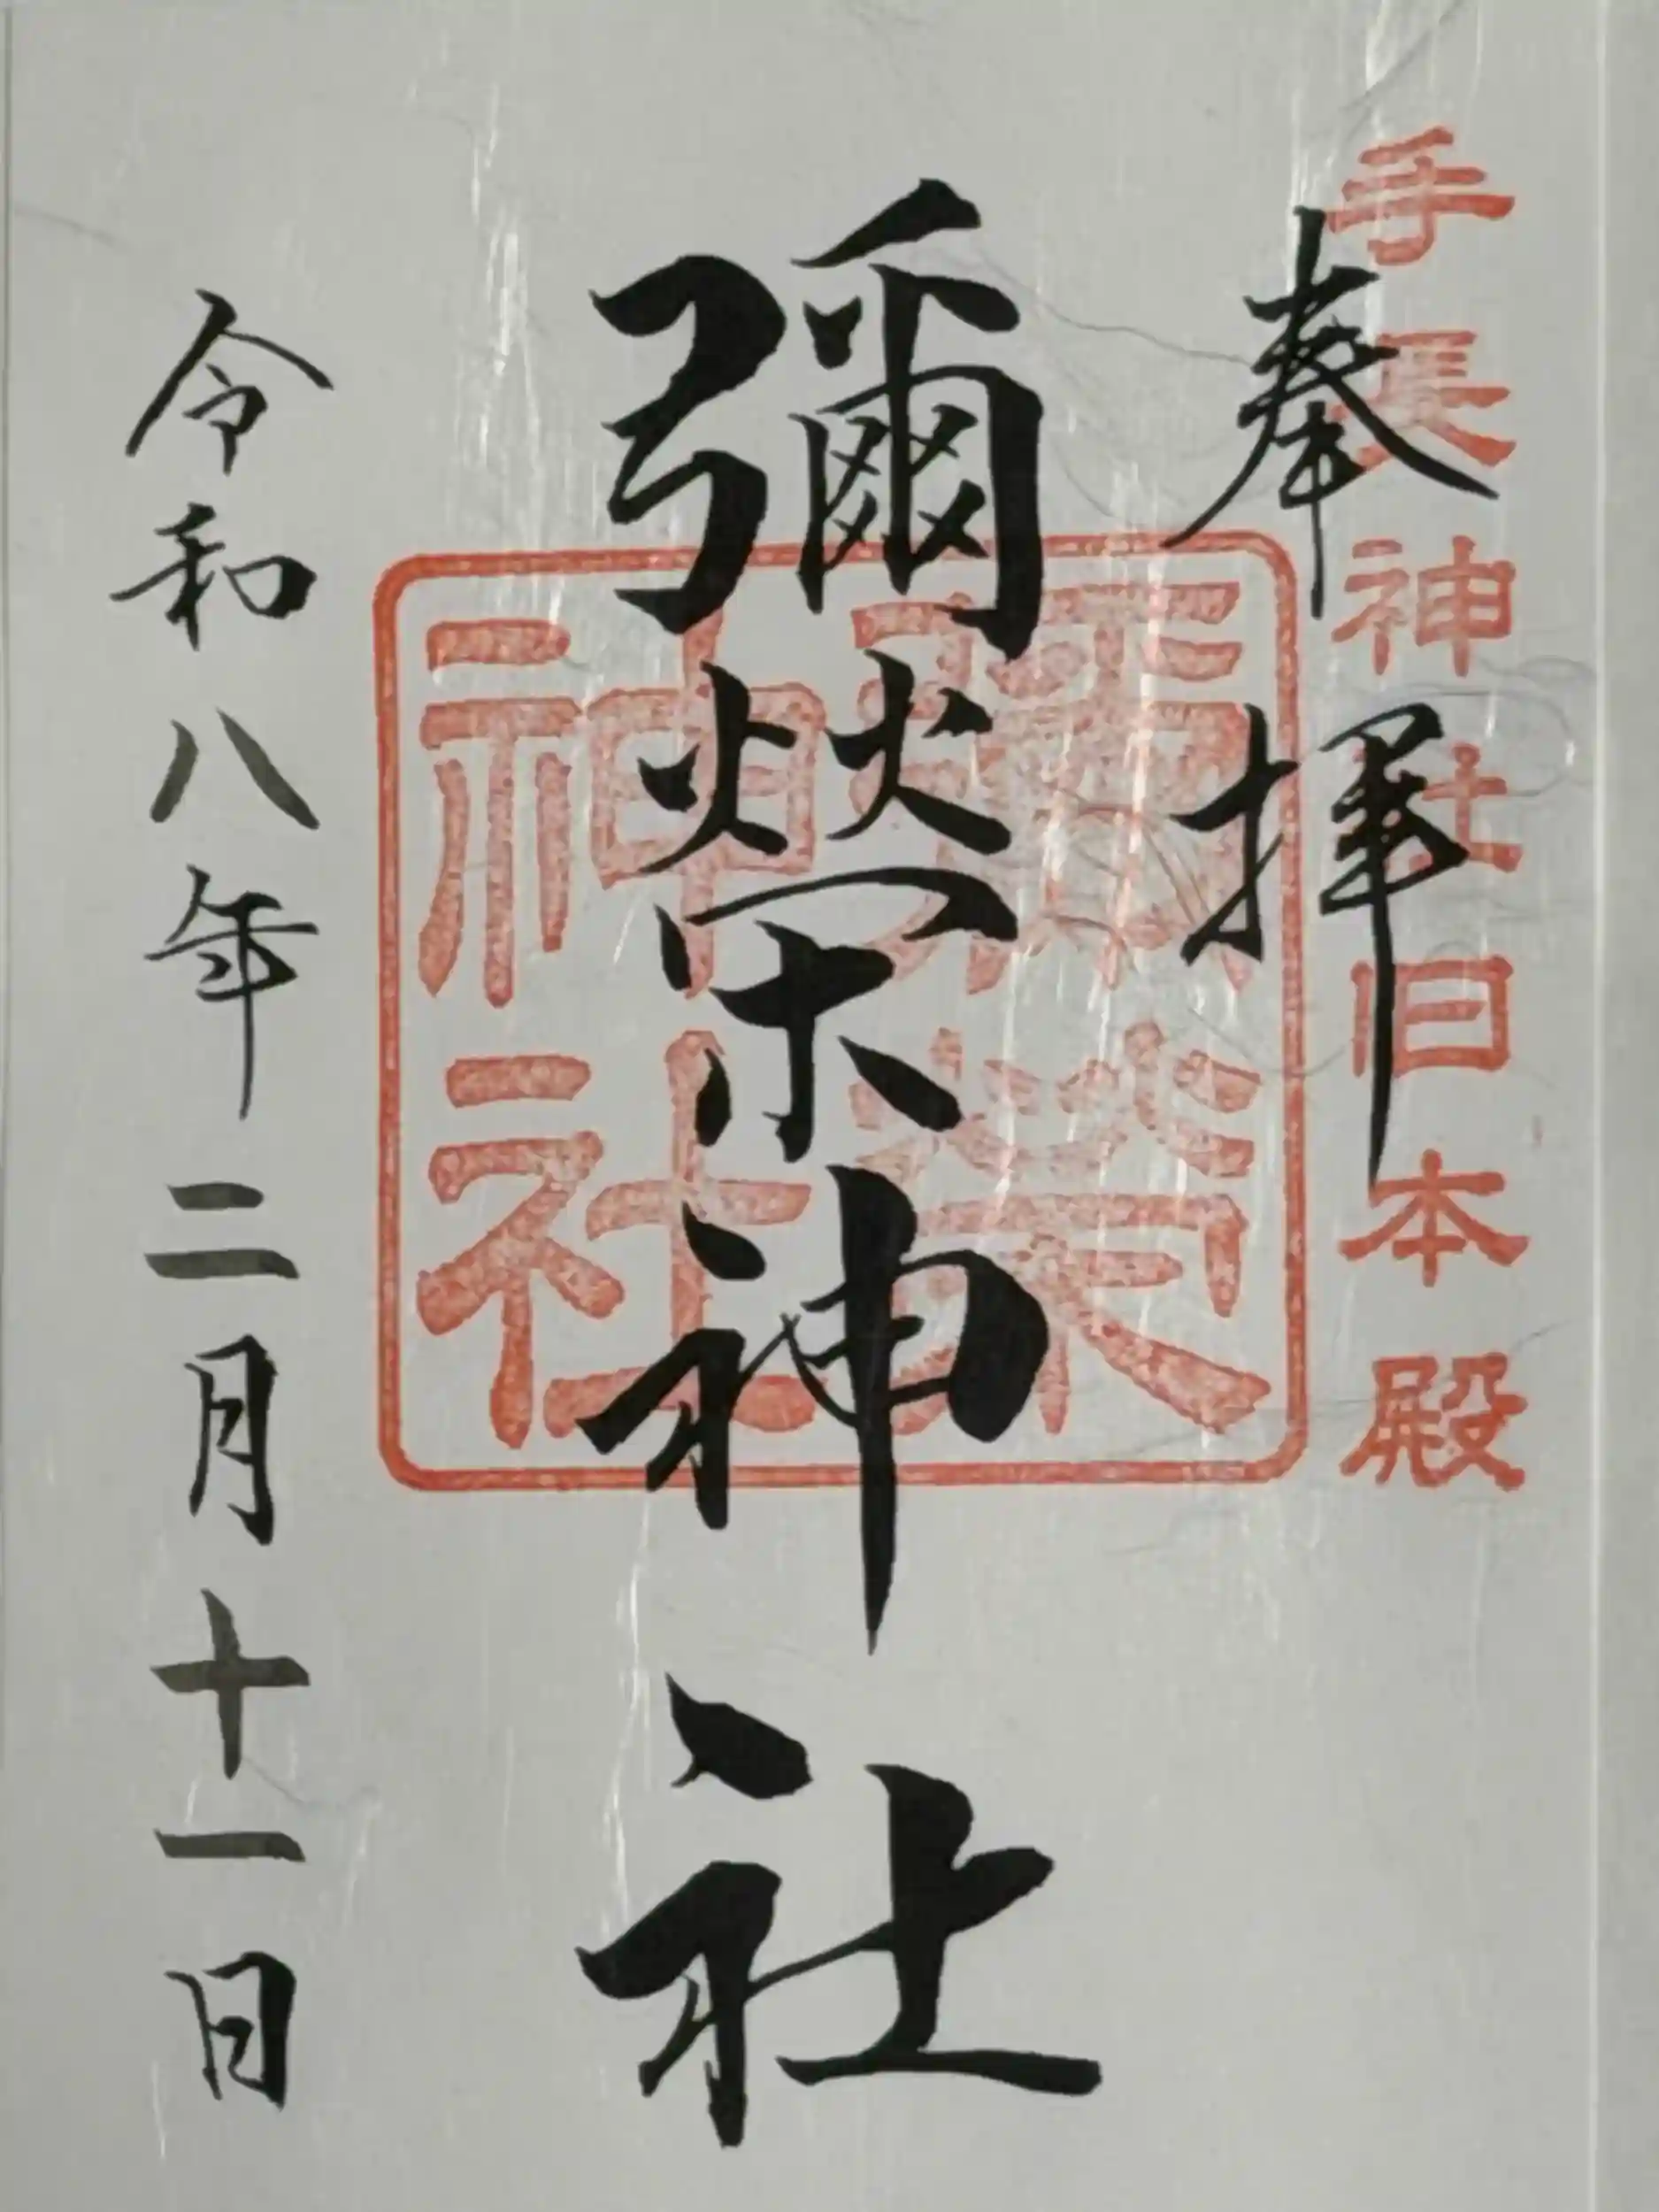 手長神社旧本殿
奉拝
彌榮神社
彌榮
神社
令和八年二月十一日